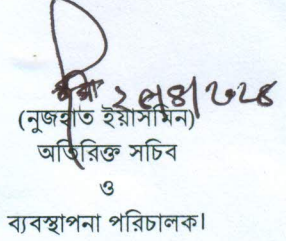 (নুজহাত ইয়াসমিন)
অতিরিক্ত সচিব
ও
ব্যবস্থাপনা পরিচালক।